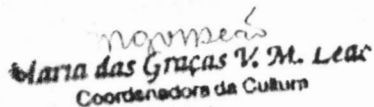 Maria das Graças V. M. Leal
Coordenadora da Cultura